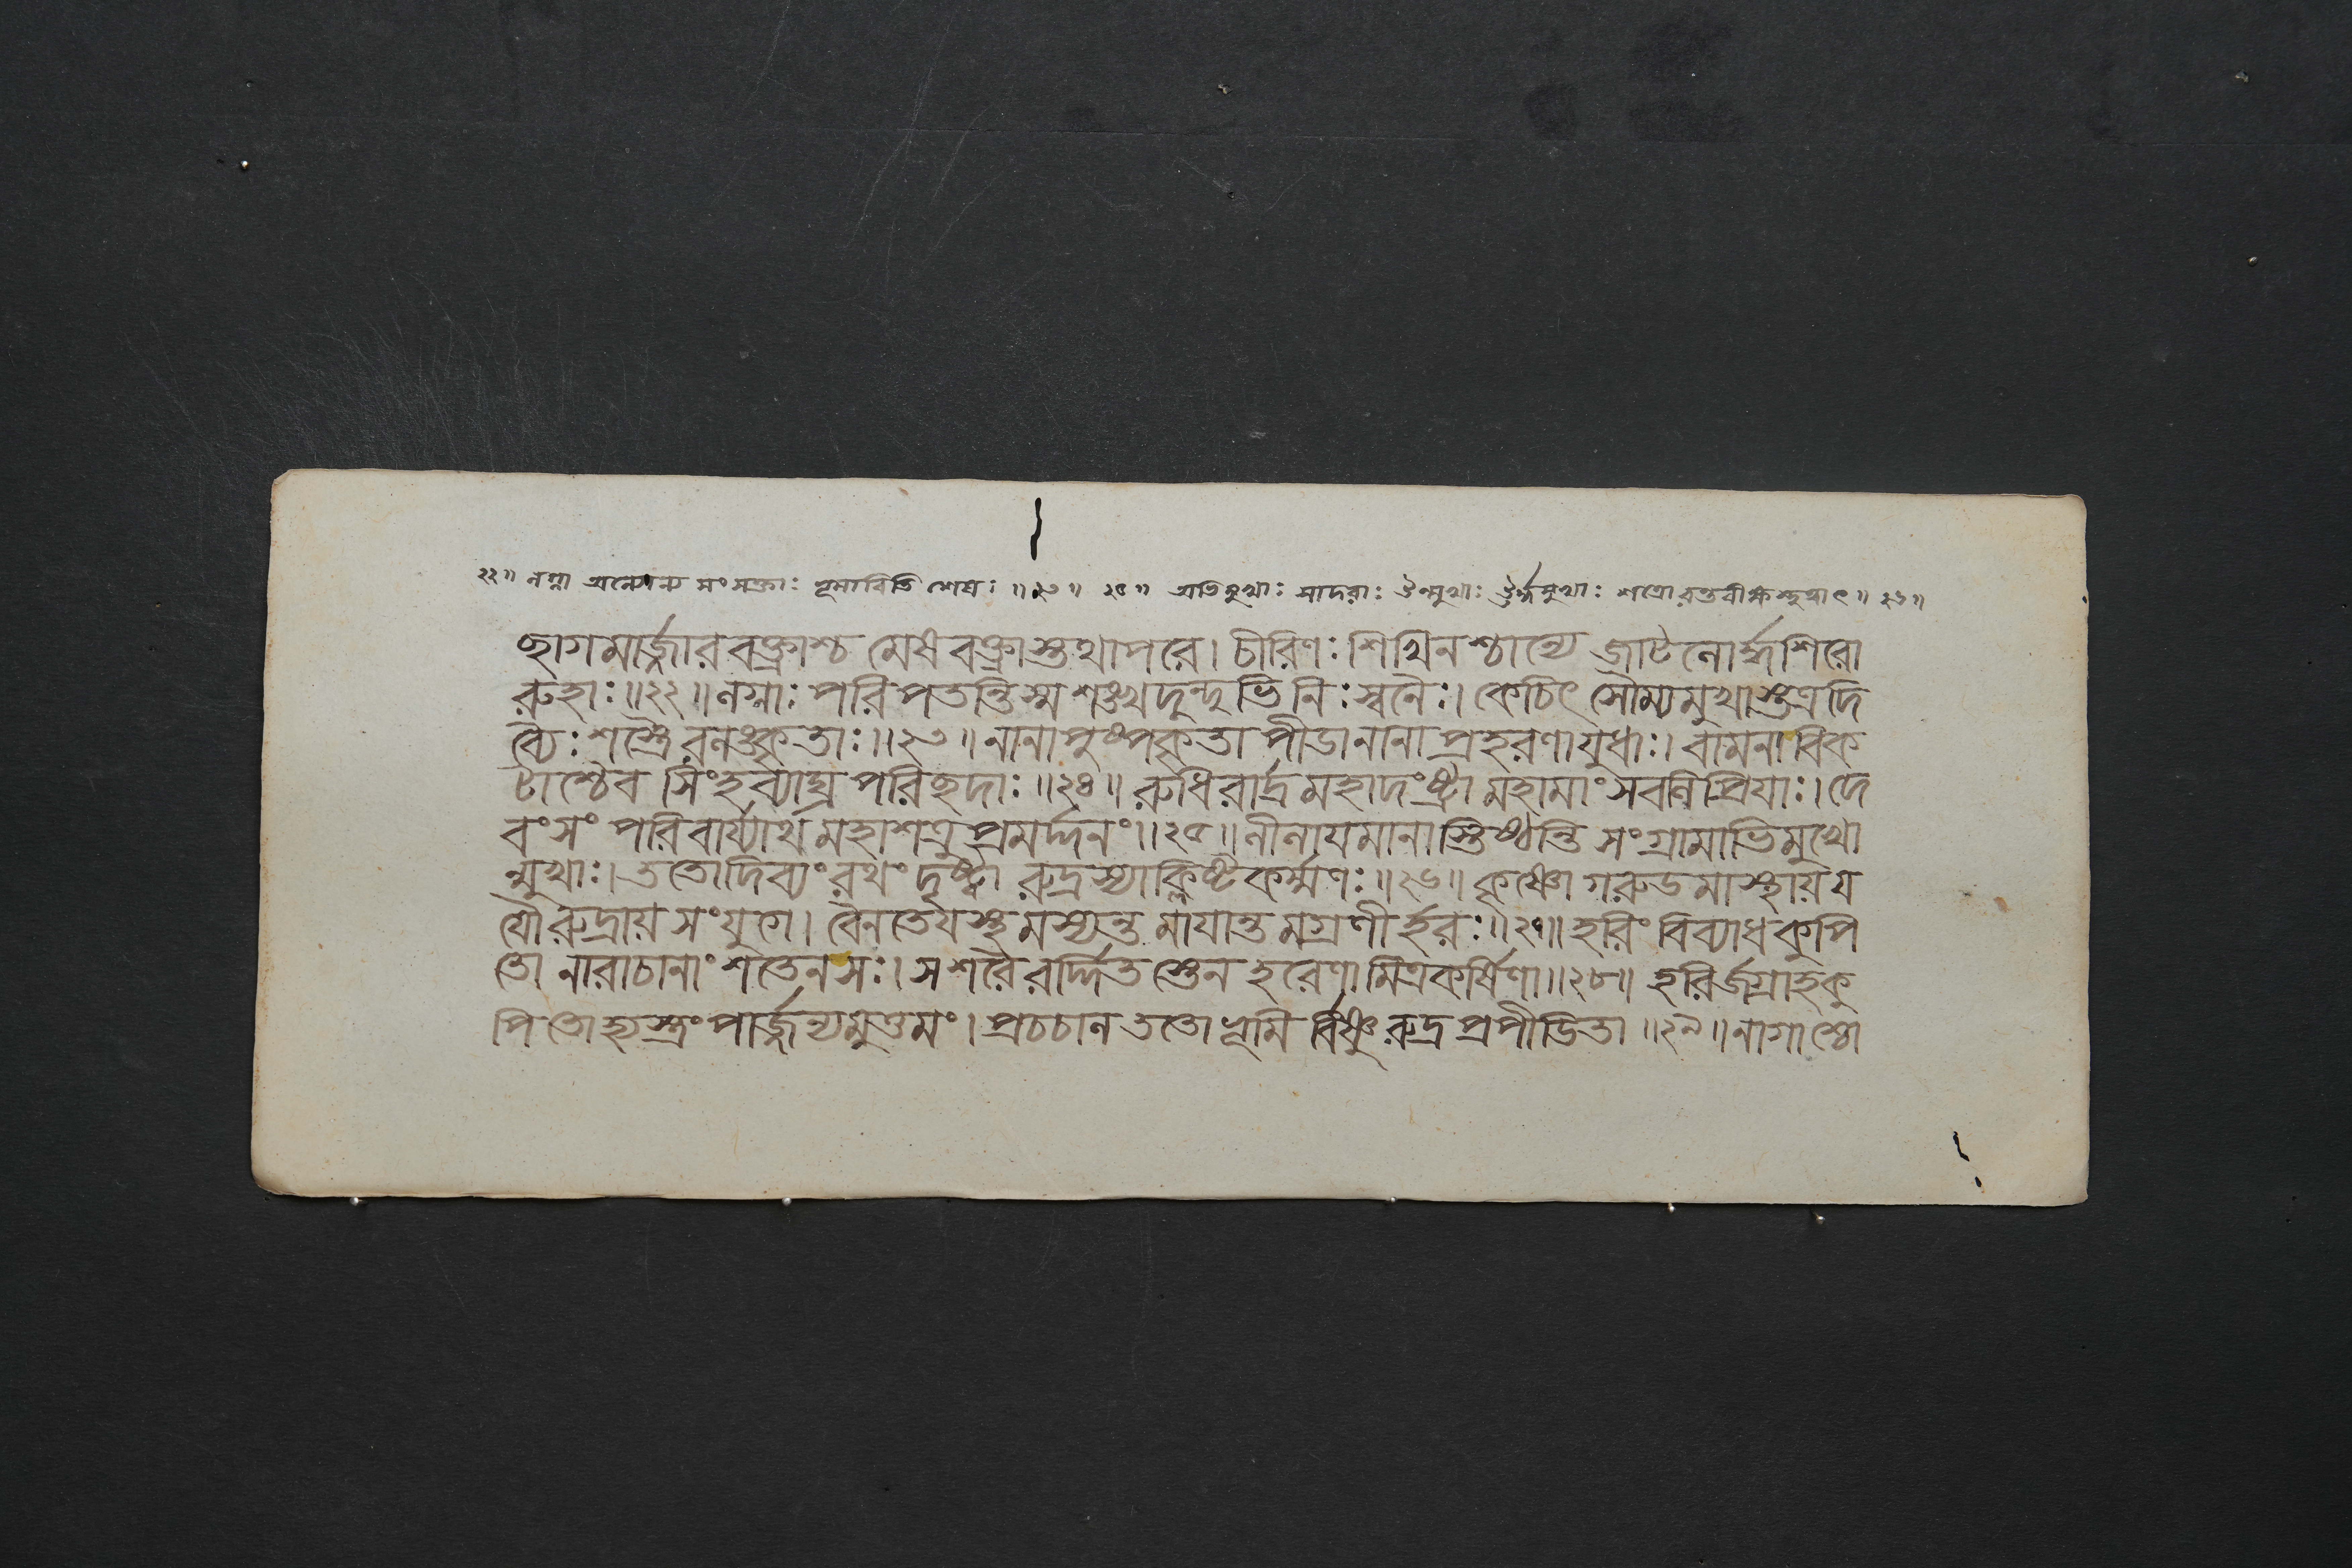 ২২॥ নগ্না অন্যোন্য সংসক্তাঃ ভূমাবিতি শেষঃ ॥২৩॥ ২৫॥ অভিমুখাঃ সাদরাঃ উন্মুখাঃ ঊর্দ্ধমুখাঃ ॥২৬॥
ছাগমার্জ্জারবক্ত্রাশ্চ মেষবক্ত্রাস্তথাপরে। চীরিণঃ শিখিনশ্চান্যে জটিনোর্দ্ধশিরো
রুহাঃ॥২২॥ নগ্নাঃ পরিপতন্তি স্ম শঙ্খদুন্দুভিনিঃস্বনৈঃ। কেচিৎ সৌম্যমুখাস্তত্র দি
ব্যৈঃ শস্ত্রৈরলঙ্কৃতাঃ॥২৩॥ নানাপুষ্পকৃতাপীডা নানাপ্রহরণাযুধাঃ। বামনা বিক
টাশ্চৈব সিংহব্যাঘ্রপরিছদাঃ॥২৪॥ রুধিরার্দ্রমহাদংষ্ট্রা মহামাংসবলিপ্রিযাঃ। দে
বং সংপরিবার্য্যাথ মহাশত্রুপ্রমর্দ্দনং॥২৫॥ লীলাযমানাস্তিষ্ঠন্তি সংগ্রামাভিমুখো
ন্মুখাঃ। ততো দিব্যং রথং দৃষ্ট্বা রুদ্রস্যাক্লিষ্টকর্ম্মণঃ॥২৬॥ কৃষ্ণো গরুডমাস্থায় য
যৌ রুদ্রায় সংযুগে। বৈনতেযস্থমস্যন্তমাযান্তমগ্রণীর্হরঃ॥২৭॥ হরিং বিব্যাধ কুপি
তো নারাচানাং শতেন সঃ। স শরৈরর্দ্দিতস্তেন হরেণামিত্রকর্ষিণা॥২৮॥ হরির্জগ্রাহ কু
পিতো হ্যস্ত্রং পার্জ্জন্যমুত্তমং। প্রচচাল ততো ভূমির্বিষ্ণুরুদ্রপ্রপীডিতা॥২৯॥ নাগাশ্চো